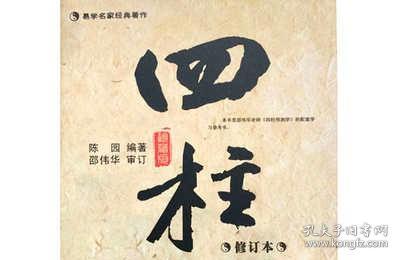 易学名家经典著作
四柱
本书是邵伟华老师《四柱预测学》的配套学
习参考书。
陈园 编著
邵伟华 审订
修订本
孔夫子旧书网
www.kongfz.com